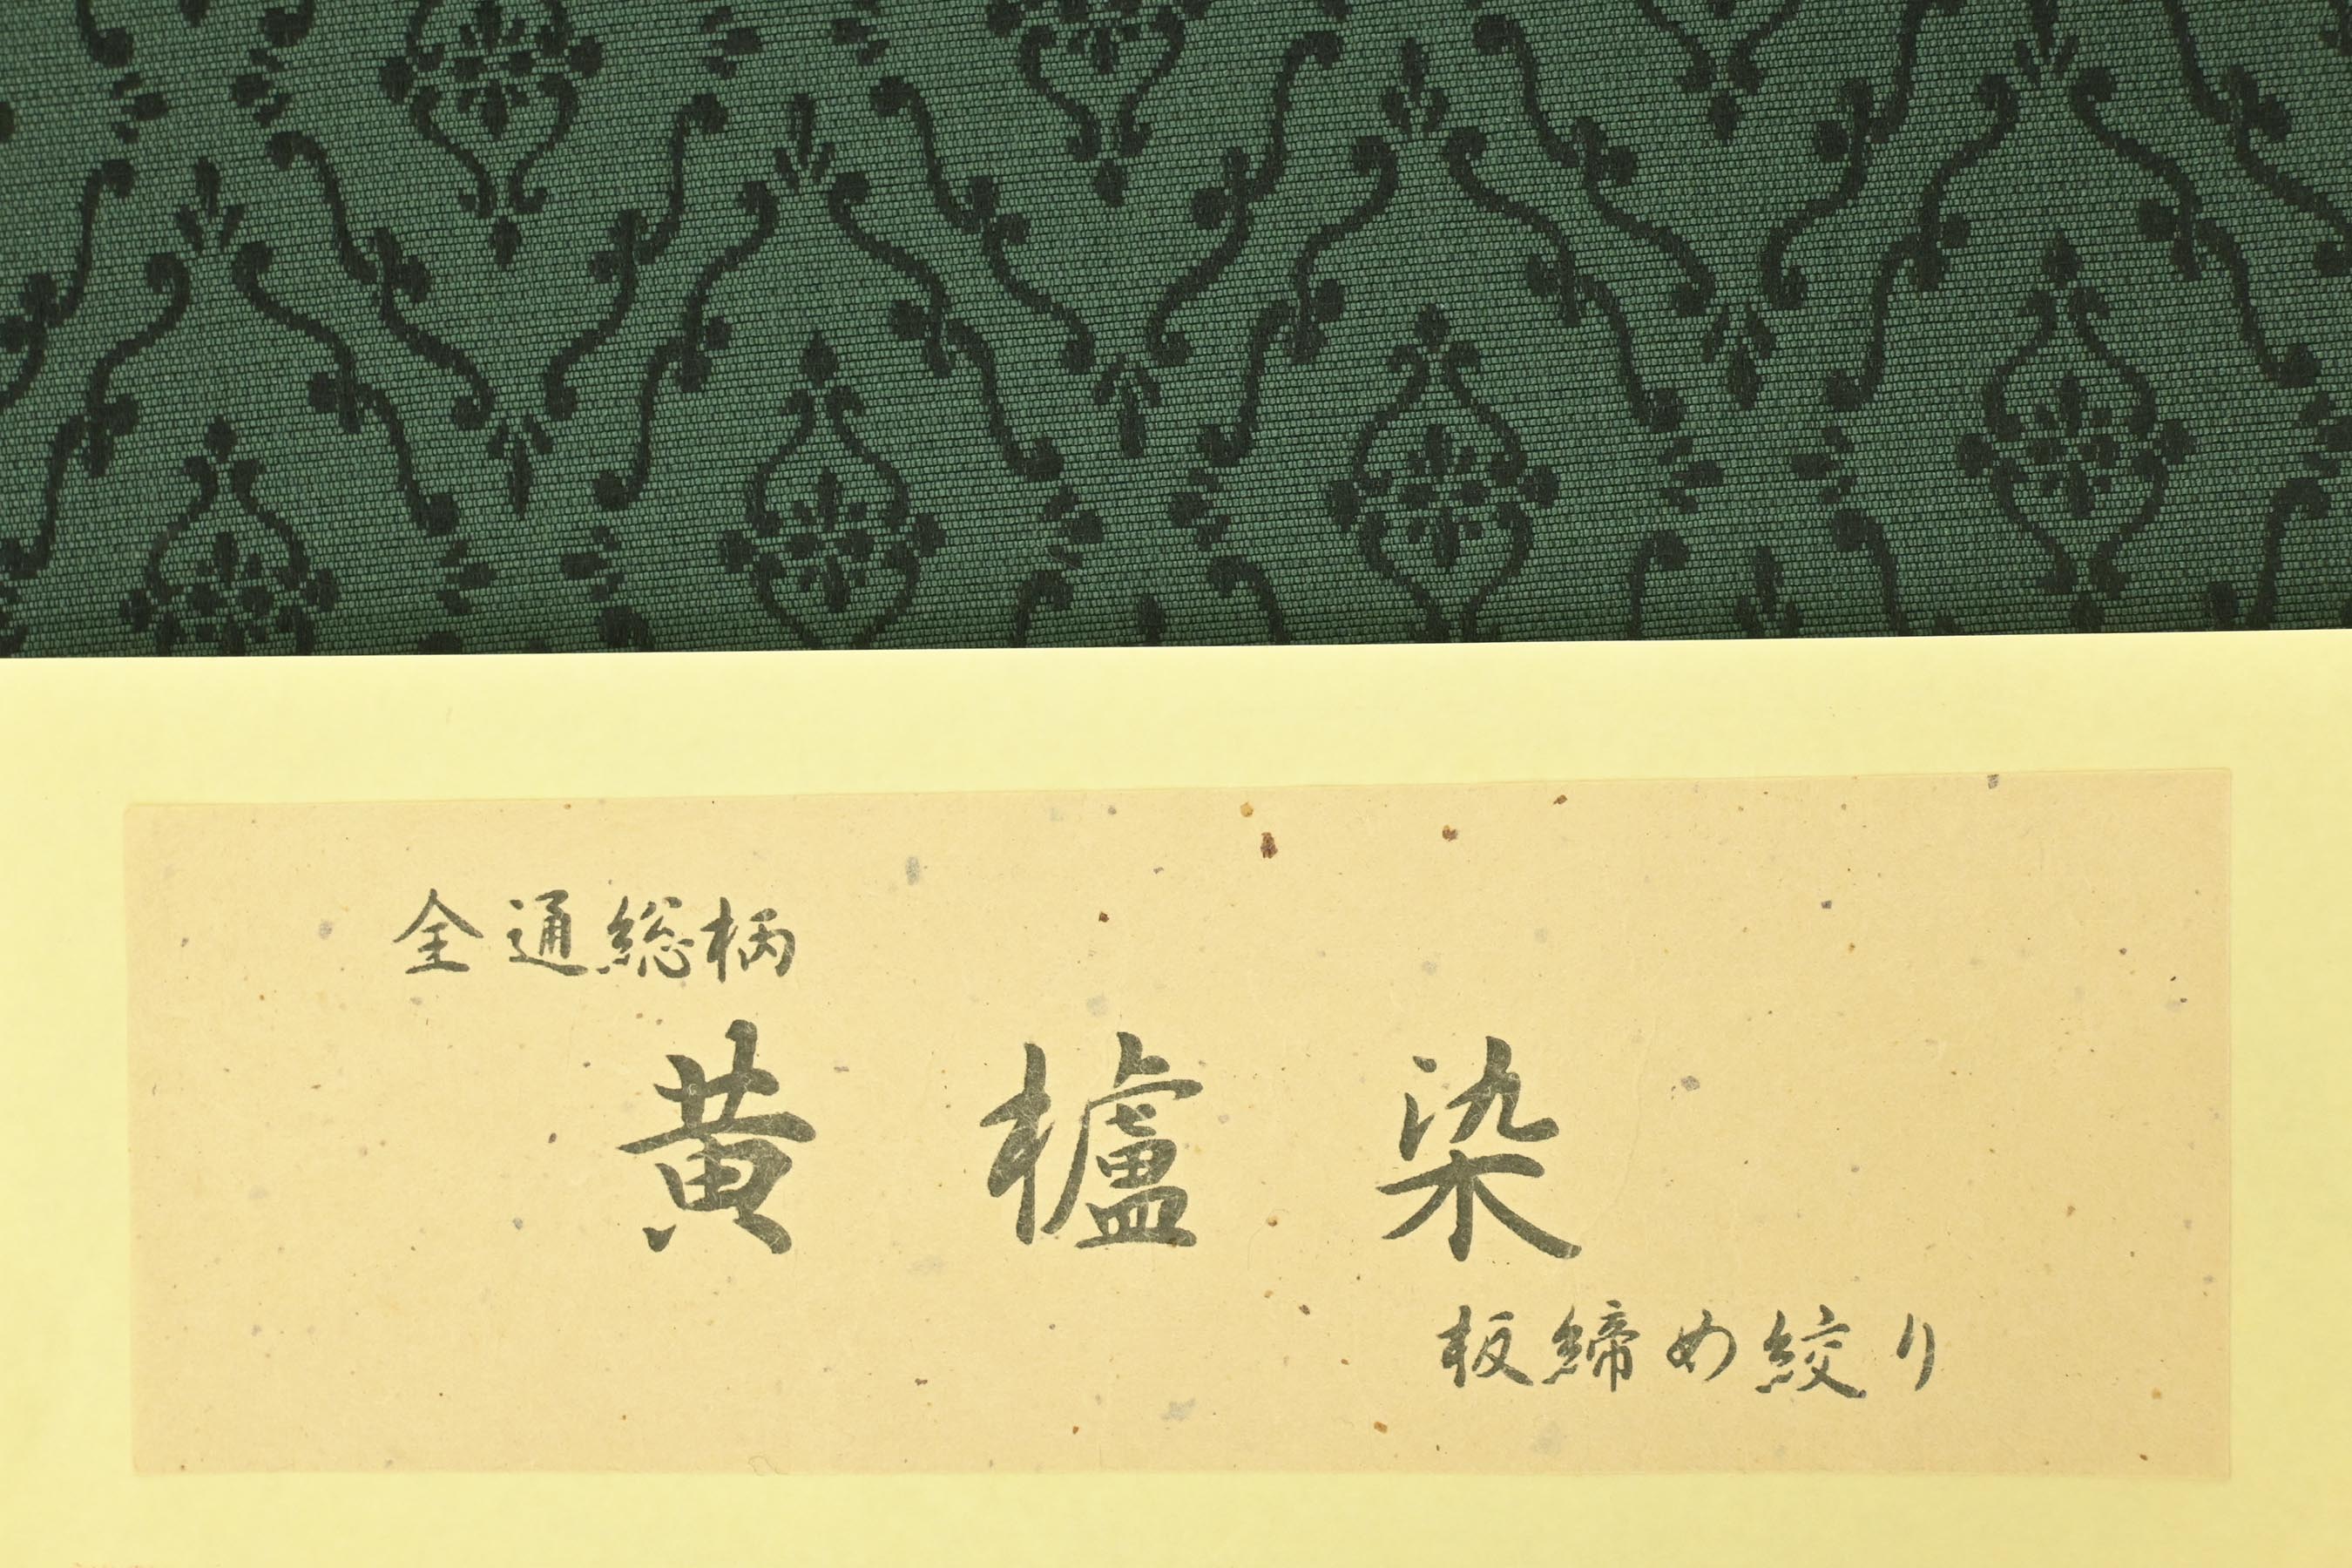 全通総柄
黄櫨染
板締め絞り